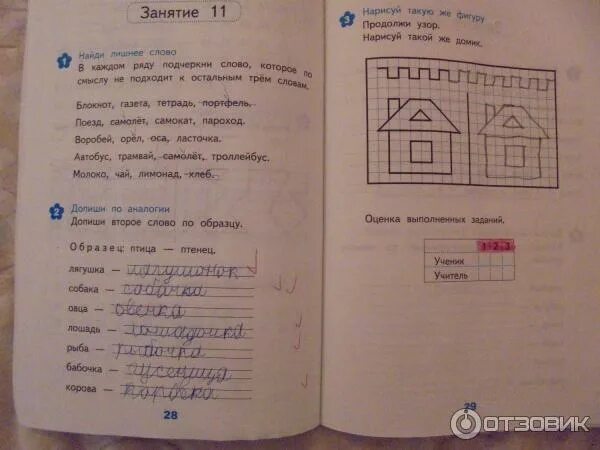 Занятие 11
1 Найди лишнее слово
В каждом ряду подчеркни слово, которое по
смыслу не подходит к остальным трём словам.
Блокнот, газета, тетрадь, портфель.
Поезд, самолёт, самокат, пароход.
Воробей, орёл, оса, ласточка.
Автобус, трамвай, самолёт, троллейбус.
Молоко, чай, лимонад, хлеб.
2 Допиши по аналогии
Допиши второе слово по образцу.
Образец: птица — птенец.
лягушка — лягушонок
собака — собачка
овца — овечка
лошадь — лошадочка
рыба — рыбочка
бабочка — гусеница
корова — коровка
28
3 Нарисуй такую же фигуру
Продолжи узор.
Нарисуй такой же домик.
Оценка выполненных заданий.
1 2 3
Ученик
Учитель
29
ОТЗОВИК